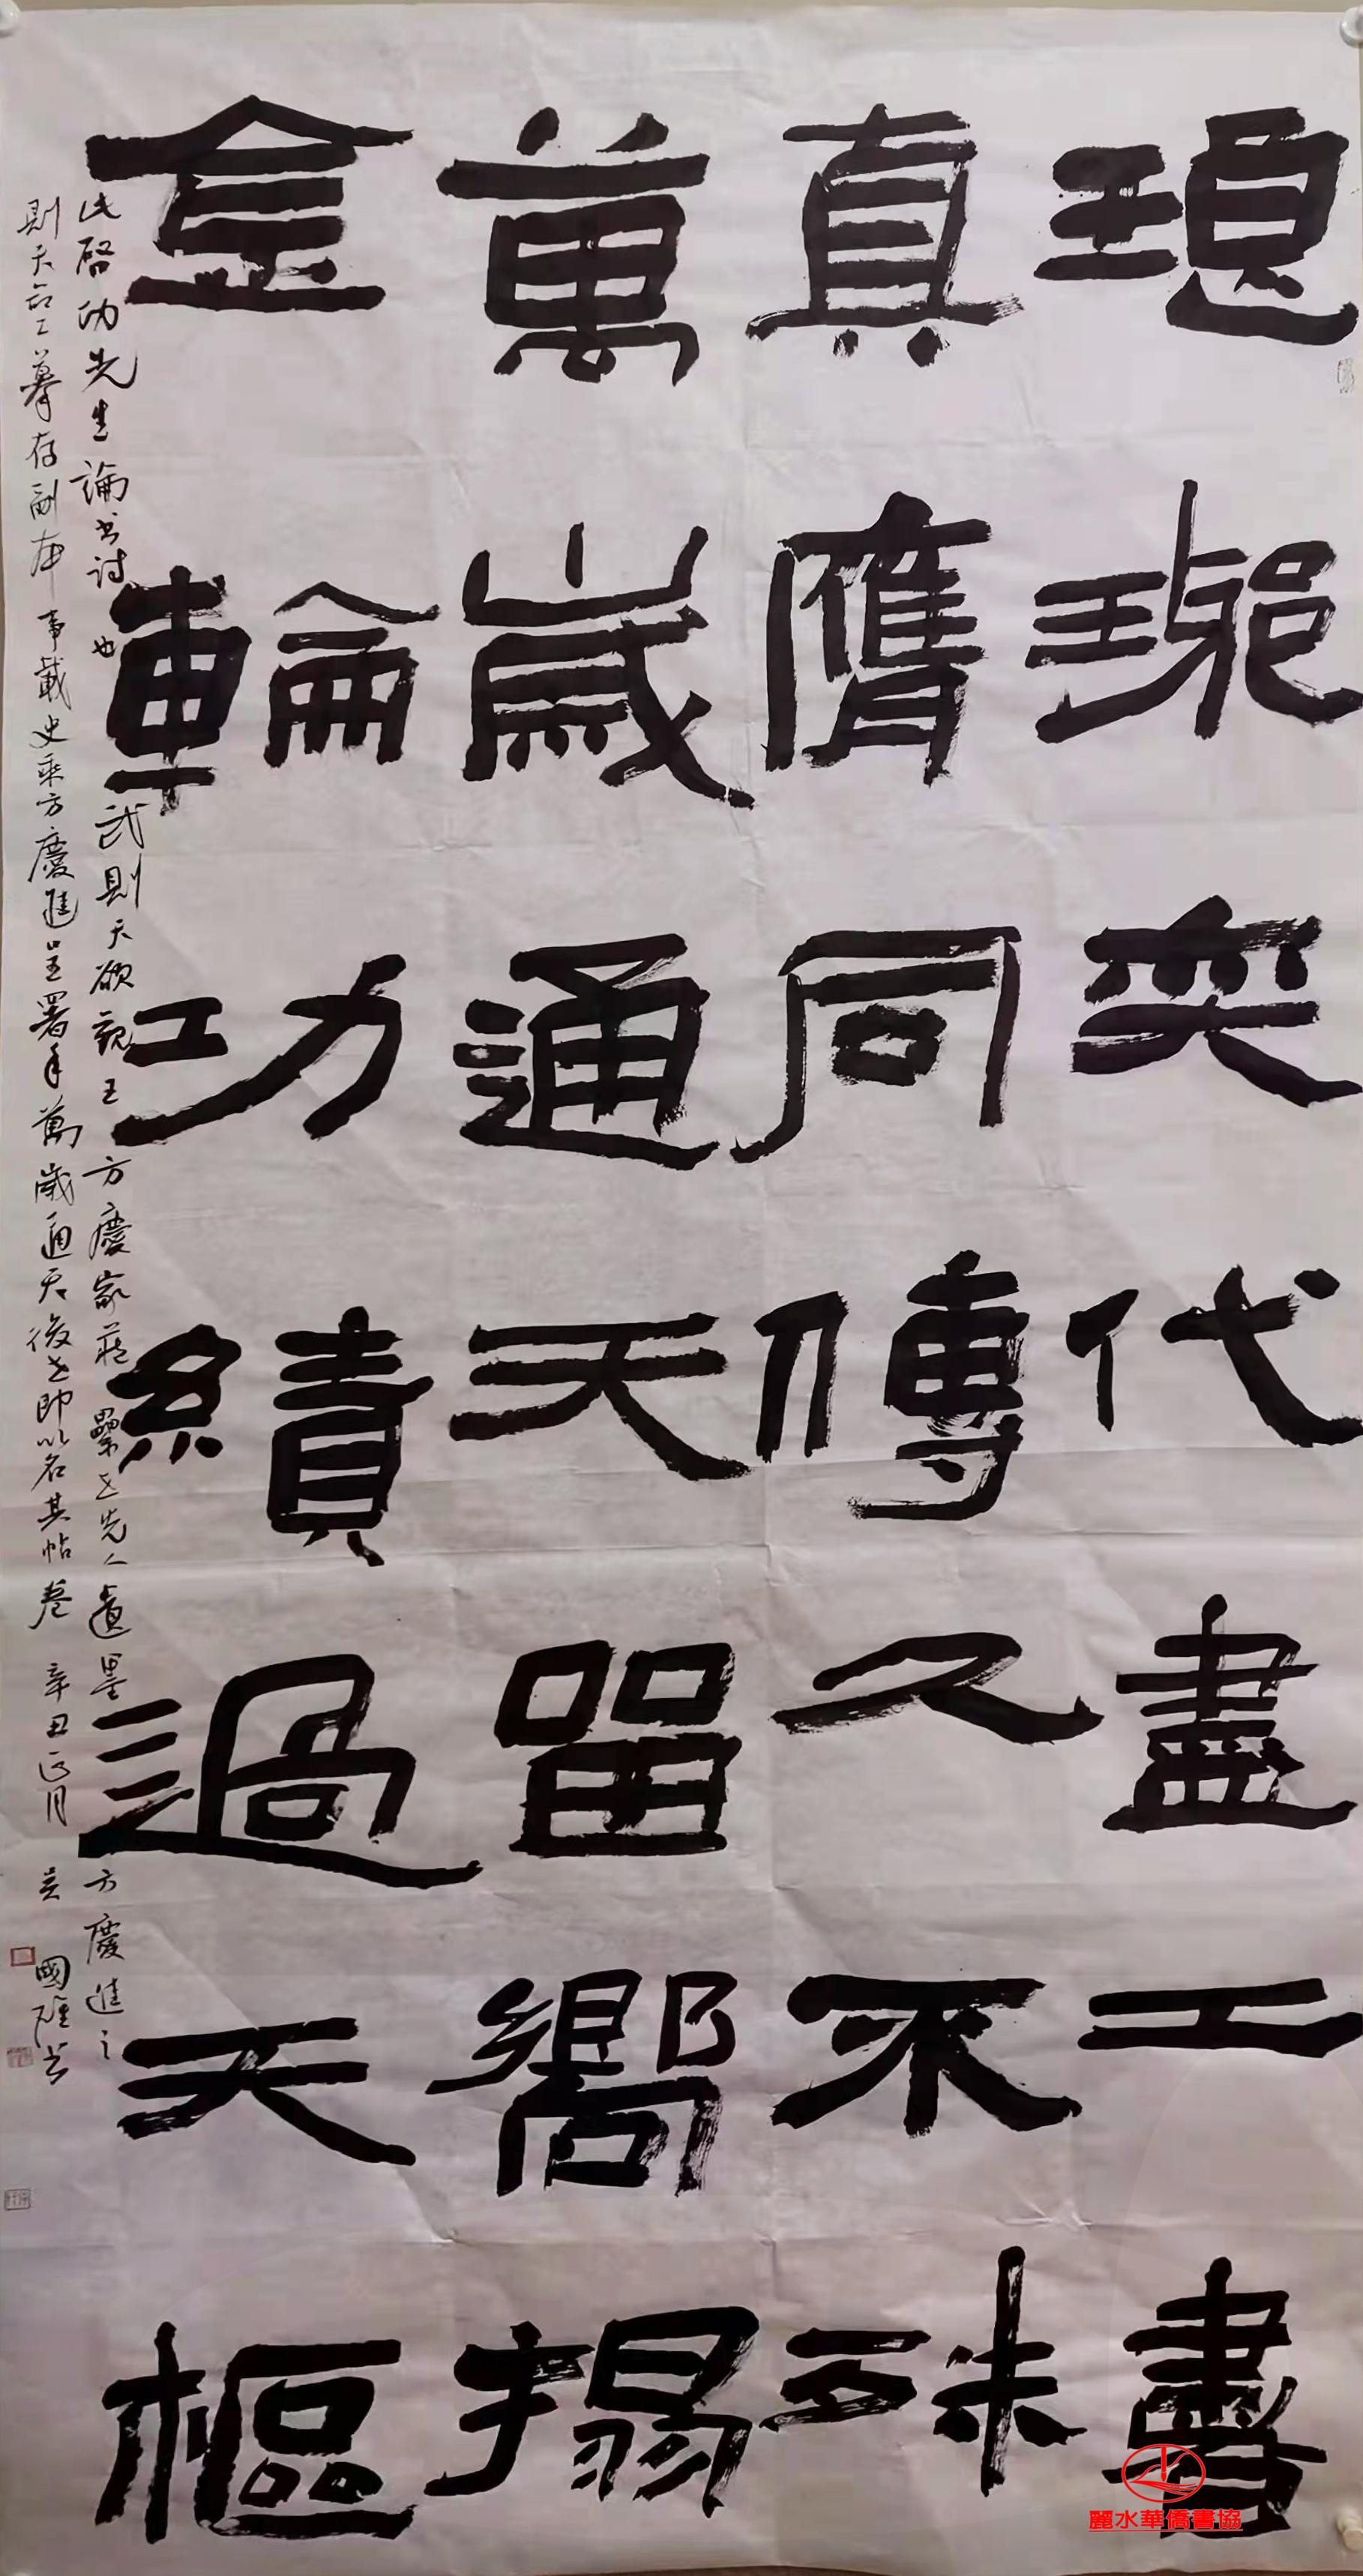 琅琊奕代盡工書
真贋同傳久不殊
萬歲通天留嚮搨
金輪功績過天樞
此啓功先生論書詩也武則天欲觀王方慶家藏纍世先人遺墨方慶進之
則天命工摹存副本事載史乘方慶進呈署年萬歲通天後世即以名其帖卷 辛丑正月 吳國雄書
麗水華僑書協